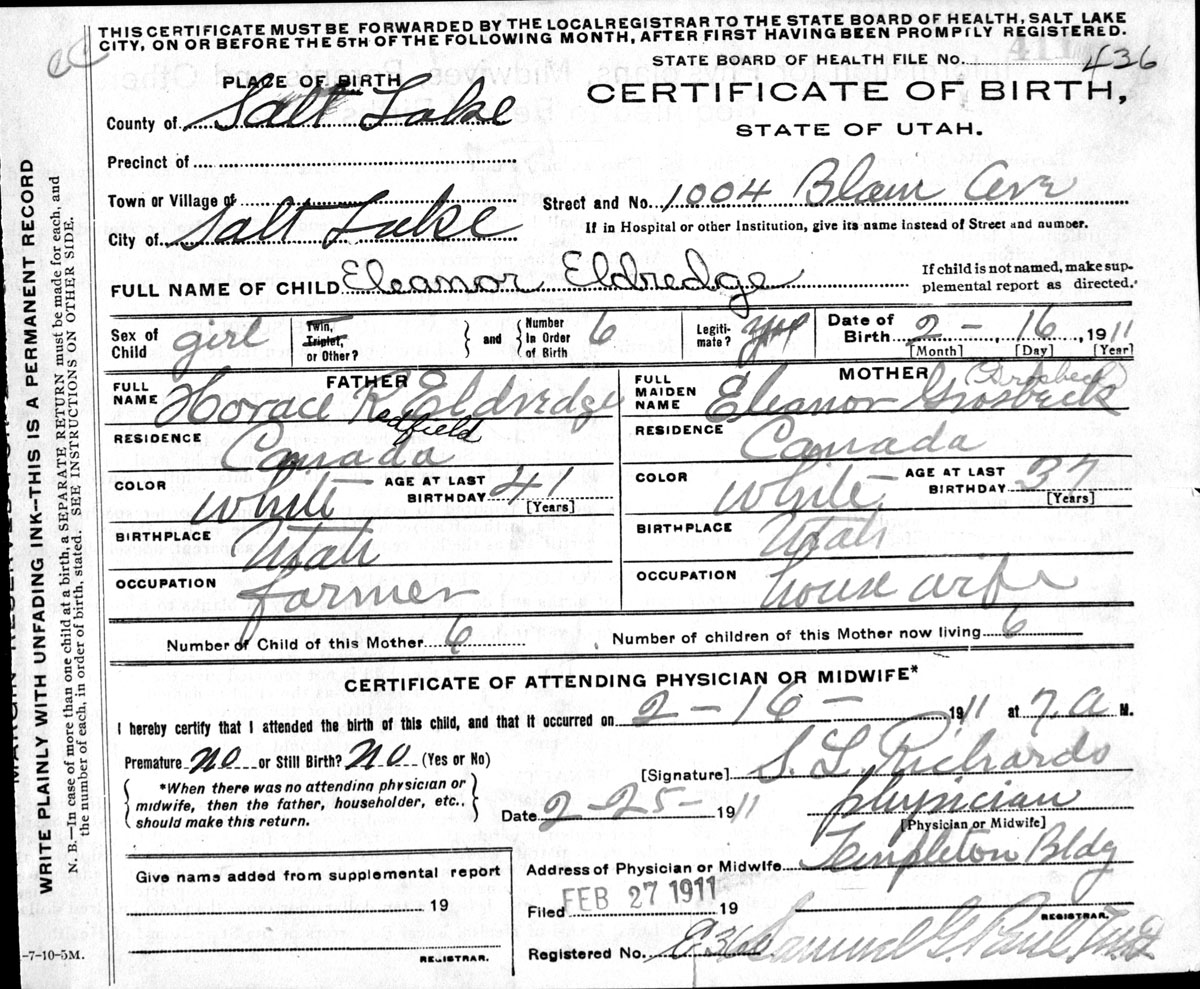 THIS CERTIFICATE MUST BE FORWARDED BY THE LOCAL REGISTRAR TO THE STATE BOARD OF HEALTH, SALT LAKE
CITY, ON OR BEFORE THE 5TH OF THE FOLLOWING MONTH, AFTER FIRST HAVING BEEN PROMPTLY REGISTERED.
STATE BOARD OF HEALTH FILE No. 436
PLACE OF BIRTH
CERTIFICATE OF BIRTH,
County of Salt Lake
STATE OF UTAH.
Precinct of
Town or Village of
Street and No. 1004 Blair Ave
City of Salt Lake
If in Hospital or other Institution, give its name instead of Street and number.
FULL NAME OF CHILD Eleanor Eldredge
If child is not named, make sup-
plemental report as directed.
Sex of Child girl
Twin, Triplet, or Other?
and
Number In Order of Birth 6
Legiti-mate? yes
Date of Birth 2 - 16, 1911
[Month] [Day] [Year]
FATHER
FULL NAME Horace R Eldredge
Redfield
RESIDENCE Canada
COLOR White
AGE AT LAST BIRTHDAY 41
[Years]
BIRTHPLACE Utah
OCCUPATION farmer
MOTHER
(Grosbeck)
FULL MAIDEN NAME Eleanor Grosbeck
RESIDENCE Canada
COLOR White
AGE AT LAST BIRTHDAY 37
[Years]
BIRTHPLACE Utah
OCCUPATION house wife
Number of Child of this Mother 6
Number of children of this Mother now living 6
CERTIFICATE OF ATTENDING PHYSICIAN OR MIDWIFE*
I hereby certify that I attended the birth of this child, and that it occurred on 2 - 16 - 1911 at 7. a M.
Premature No or Still Birth? No (Yes or No)
[Signature] S. L. Richards
*When there was no attending physician or
midwife, then the father, householder, etc.,
should make this return.
Date 2 - 25 - 1911
physician
[Physician or Midwife]
Address of Physician or Midwife Templeton Bldg
Give name added from supplemental report
19
REGISTRAR.
Filed FEB 27 1911 19
REGISTRAR.
Registered No. 436 Samuel G. Paul
-7-10-5M.
WRITE PLAINLY WITH UNFADING INK—THIS IS A PERMANENT RECORD
N. B.—In case of more than one child at a birth, a SEPARATE RETURN must be made for each, and
the number of each, in order of birth, stated. SEE INSTRUCTIONS ON OTHER SIDE.